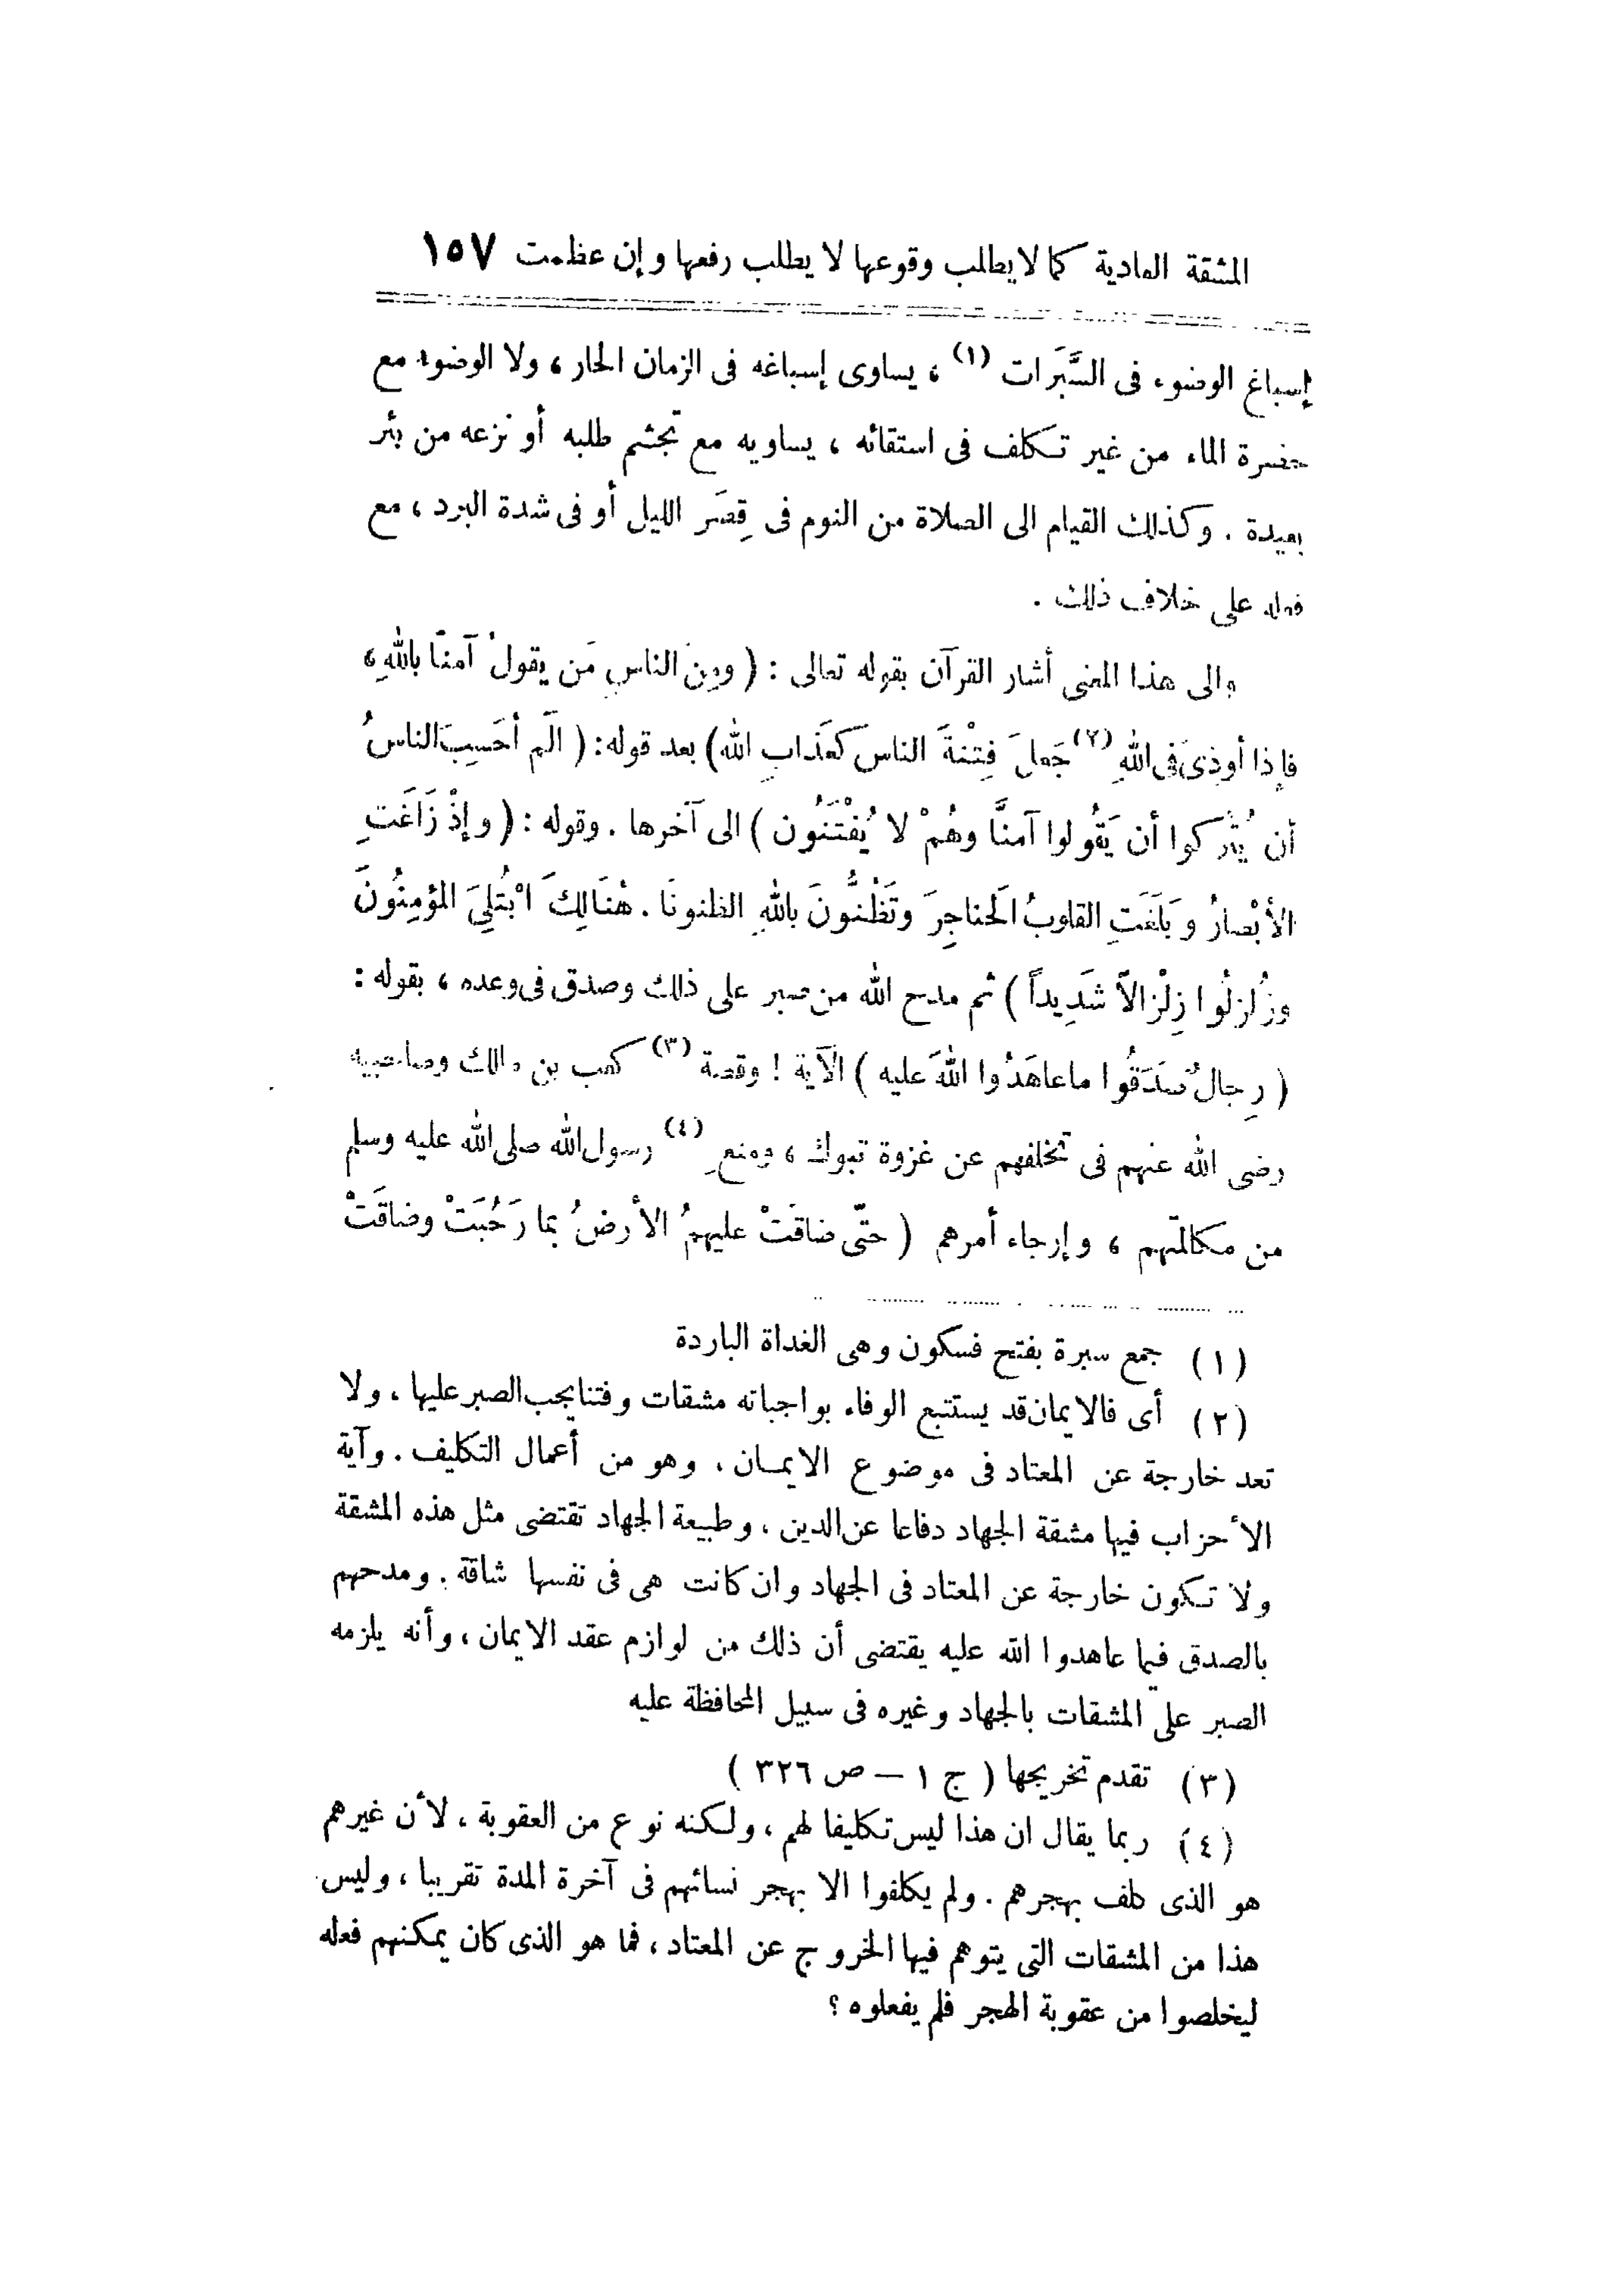 المشقة العادية كما لا يطلب وقوعها لا يطلب رفعها وإن عظمت ١٥٧
إسباغ الوضوء فى السَّبَرات (١) ، يساوى إسباغه فى الزمان الحار ، ولا الوضوء مع
حضرة الماء من غير تكلف فى استقائه ، يساويه مع تجشم طلبه أو نزعه من بئر
بعيدة . وكذلك القيام الى الصلاة من النوم فى قِصَر الليل أو فى شدة البرد ، مع
فعله على خلاف ذلك .
والى هذا المعنى أشار القرآن بقوله تعالى : ( ومِنَ الناسِ مَن يقولُ آمنّا باللهِ ،
فإذا أوذِىَ فى اللهِ (٢) جَعلَ فِتْنةَ الناس كعَذابِ الله ) بعد قوله : ( الَم أحَسِبَ الناسُ
أن يُتْركوا أن يَقُولوا آمنَّا وهُمْ لا يُفْتَنُون ) الى آخرها . وقوله : ( وإذْ زَاغَتِ
الأبْصارُ وبَلَغَتِ القلوبُ الَحناجِرَ وتَظُنُّونَ باللهِ الظنونَا . هُنَالِكَ ابْتُلِىَ المؤمِنُونَ
وزُلزلُوا زِلْزالاً شَدِيداً ) ثم مدح الله من صبر على ذلك وصدق فى وعده ، بقوله :
( رِجالٌ صَدَقُوا ما عاهَدُوا اللهَ عليه ) الآية ! وقصة (٣) كعب بن مالك وصاحبيه
رضى الله عنهم فى تخلفهم عن غزوة تبوك ، ومنعِ (٤) رسول الله صلى الله عليه وسلم
من مكالمتهم ، وإرجاء أمرهم ( حتّى ضاقَتْ عليهمُ الأرضُ بما رَحُبَتْ وضاقَتْ
(١) جمع سبرة بفتح فسكون وهى الغداة الباردة
(٢) أى فالايمان قد يستتبع الوفاء بواجباته مشقات وفتنا يجب الصبر عليها ، ولا
تعد خارجة عن المعتاد فى موضوع الايمان . وهو من أعمال التكليف . وآية
الأحزاب فيها مشقة الجهاد دفاعا عن الدين ، وطبيعة الجهاد تقتضى مثل هذه المشقة
ولا تكون خارجة عن المعتاد فى الجهاد وان كانت هى فى نفسها شاقة . ومدحهم
بالصدق فيما عاهدوا الله عليه يقتضى أن ذلك من لوازم عقد الايمان ، وأنه يلزمه
الصبر على المشقات بالجهاد وغيره فى سبيل المحافظة عليه
(٣) تقدم تخريجها ( ج ١ — ص ٣٢٦ )
(٤) ربما يقال ان هذا ليس تكليفا لهم ، ولكنه نوع من العقوبة ، لأن غيرهم
هو الذى كلف بهجرهم . ولم يكلفوا الا بهجر نسائهم فى آخرة المدة تقريبا ، وليس
هذا من المشقات التى يتوهم فيها الخروج عن المعتاد ، فما هو الذى كان يمكنهم فعله
ليخلصوا من عقوبة الهجر فلم يفعلوه ؟